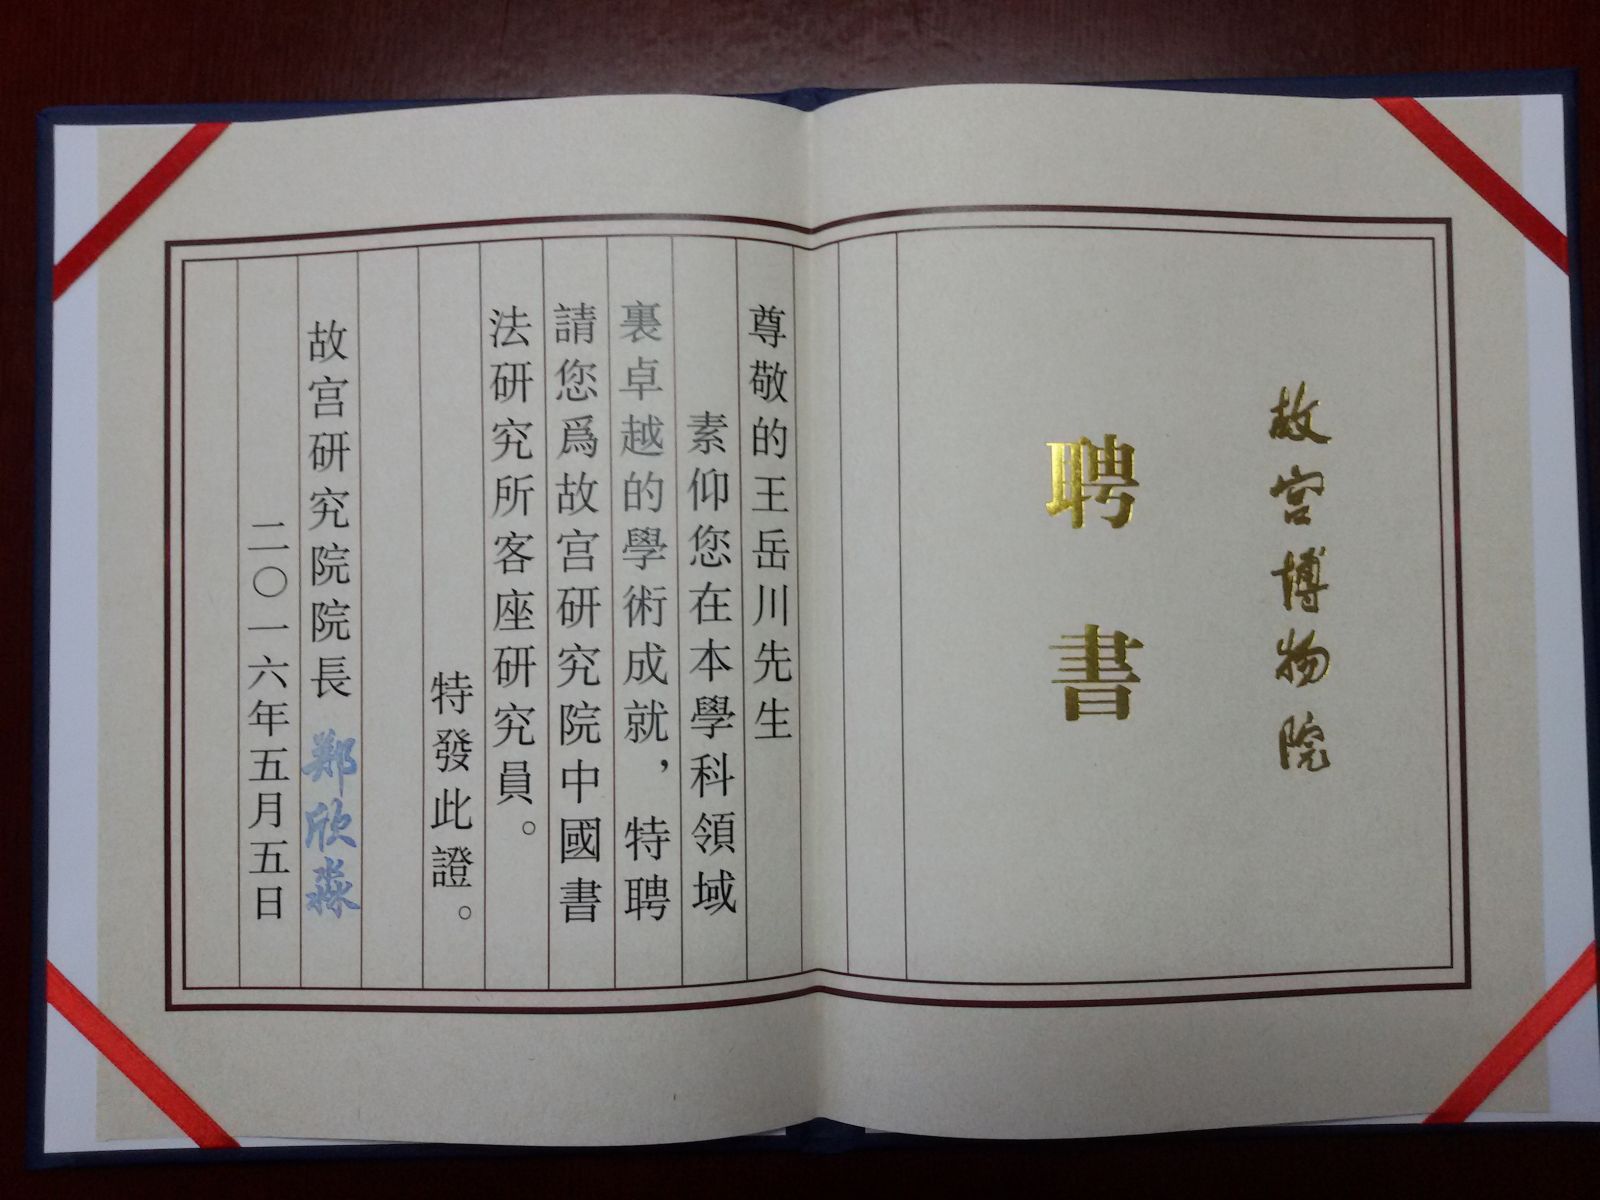 故宫博物院
聘書
尊敬的王岳川先生
素仰您在本學科領域
裏卓越的學術成就，特聘
請您爲故宫研究院中國書
法研究所客座研究員。
特發此證。
故宫研究院院長 鄭欣淼
二〇一六年五月五日